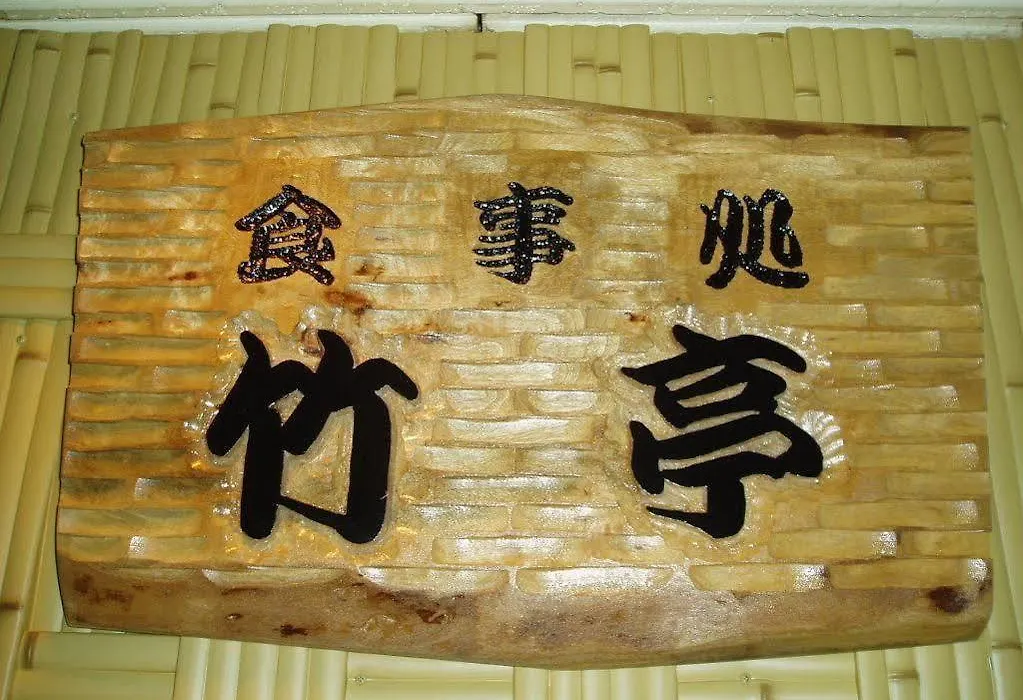 食事処
竹亭